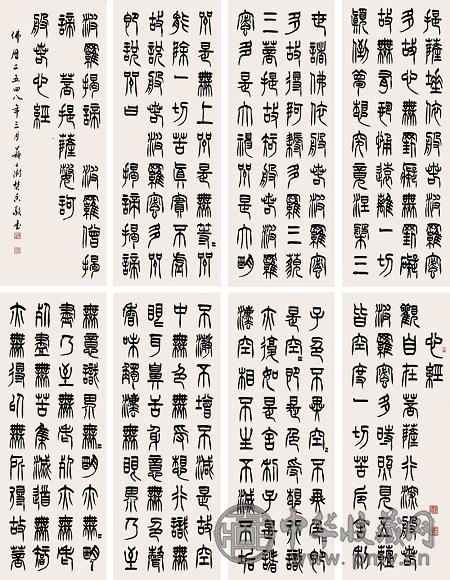 心經
觀自在菩薩行深般若
波羅蜜多時照見五蘊
皆空度一切苦厄舍利
子色不異空〻不異色色即
是空〻即是色受想行識
亦復如是舍利子是諸
法空相不生不滅不垢
不淨不增不減是故空
中無色無受想行識無
眼耳鼻舌身意無色聲
香味觸法無眼界乃至
無意識界無〻明亦無〻明
盡乃至無老死亦無老
死盡無苦集滅道無智
亦無得以無所得故菩
提薩埵依般若波羅蜜
多故心無罣礙無罣礙
故無有恐怖遠離一切
顛倒夢想究竟涅槃三
世諸佛依般若波羅蜜
多故得阿耨多羅三藐
三菩提故知般若波羅
蜜多是大神咒是大明
咒是無上咒是無等〻咒
能除一切苦真實不虛
故說般若波羅蜜多咒
即說咒曰 揭諦揭諦
波羅揭諦 波羅僧揭
諦 菩提薩婆訶
般若心經
佛曆二五四八年三月蘇士澍焚香敬書
中华收藏网